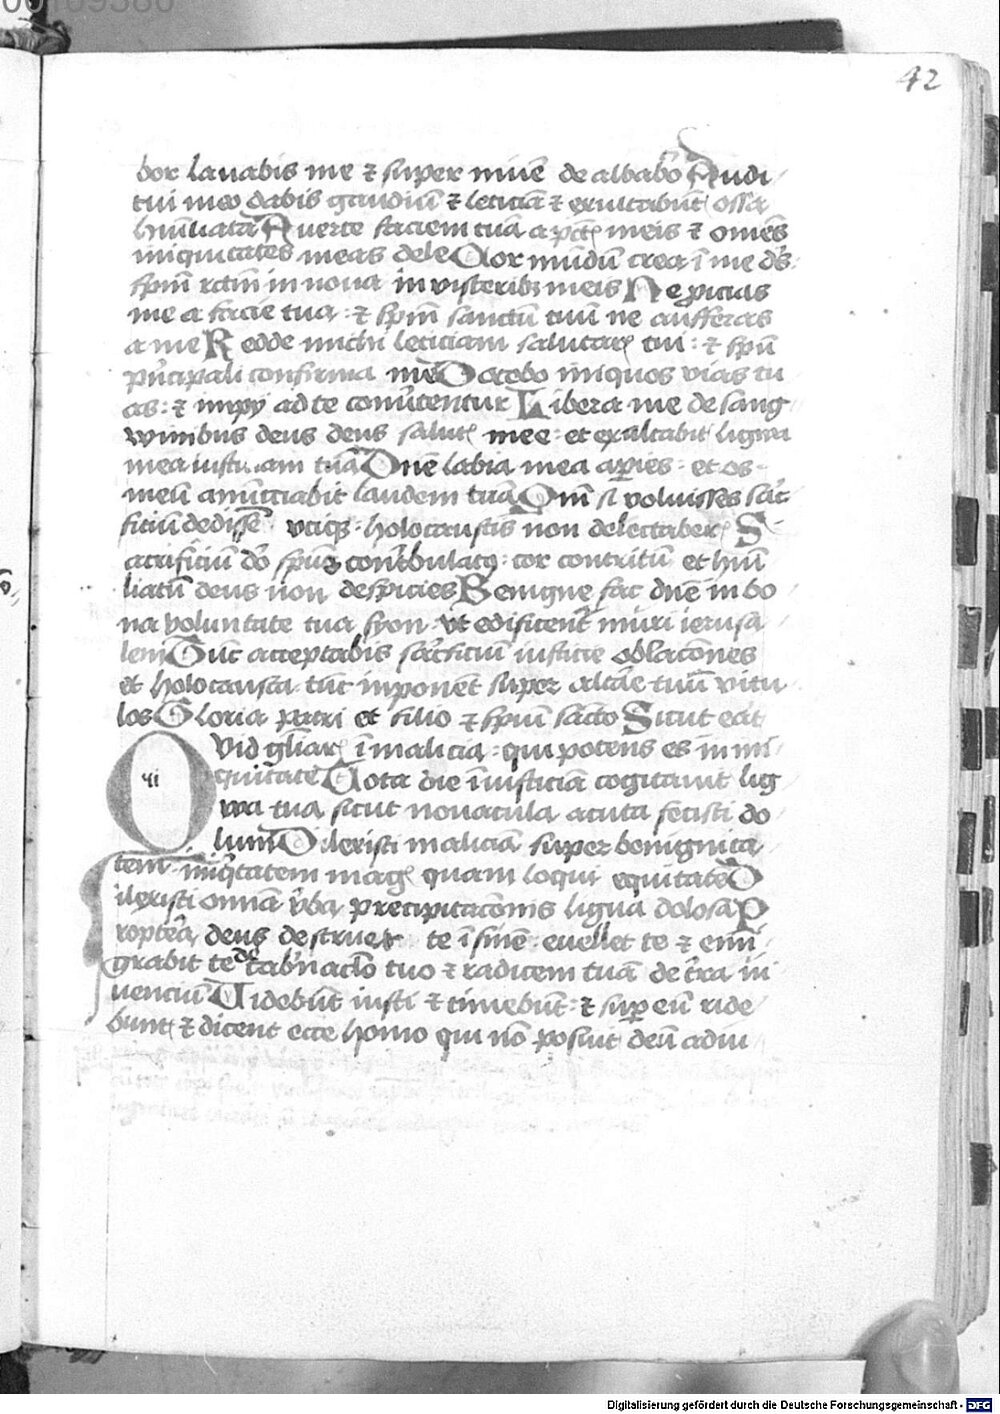 00109580
42
bor lauabis me ⁊ super niuē de albabōr Audi
tui meo dabis gaudiū ⁊ leticiā ⁊ exultabūt ossa
hūiliata Auerte faciem tuā a pctīs meis ⁊ omēs
iniquitates meas dele Cor mūdū crea ī me dēs
spm̄ rctm̄ innoua in visceribz meis Ne proicias
me a facie tua : ⁊ spm̄ sanctū tuū ne aufferas
a me Redde michi leticiam salutaris tui : ⁊ spū
prīcipali confirma me Docebo iniquos vias tu
as : ⁊ impij ad te conūtentur Libera me de sang
winibus deus deus salutis mee : et exaltabit ligwa
mea iusticiam tuā Dnē labia mea aperies : et os
meū anūcciabit laudem tuā Qm̄ si voluisses sac̄
ficiū dedissē vtiqꝫ : holocaustis non delectaberis S
acrificiū dō spūs contbulatꝯ : cor contritū et hūi
liatū deus non despicies Benigne fac dnē in bo
na voluntate tua syon : vt edificent̄ muri ierusa
lem Tūc acceptabis sac̄ficiū iusticie oblacōnes
et holocausta : tūc inponēt super altāe tuū vitu
los Gloria patri et filio ⁊ spūi sācto Sicut erāt
Qvid gl̄iaris ī malicia : qui potens es in ini
vi
quitate Tota die īiusticiā cogitauit lig
wa tua sicut nouacula acuta fecisti do
lum Dilexisti maliciā super benignita
tem : iniq̄tatem magis quam loqui equitatē D
ilexisti omnia v̄ba precipitacōnis ligwa dolosa P
roptēa deus destruet te ī finē : euellet te ⁊ emi
grabit te de tab̄nac̄lo tuo ⁊ radicem tuā de t̄ra ui
uenciū Videbūt iusti ⁊ timebūt : ⁊ sup eū ride
bunt ⁊ dicent ecce homo qui nō posuit deū adiu
Digitalisierung gefördert durch die Deutsche Forschungsgemeinschaft - DFG